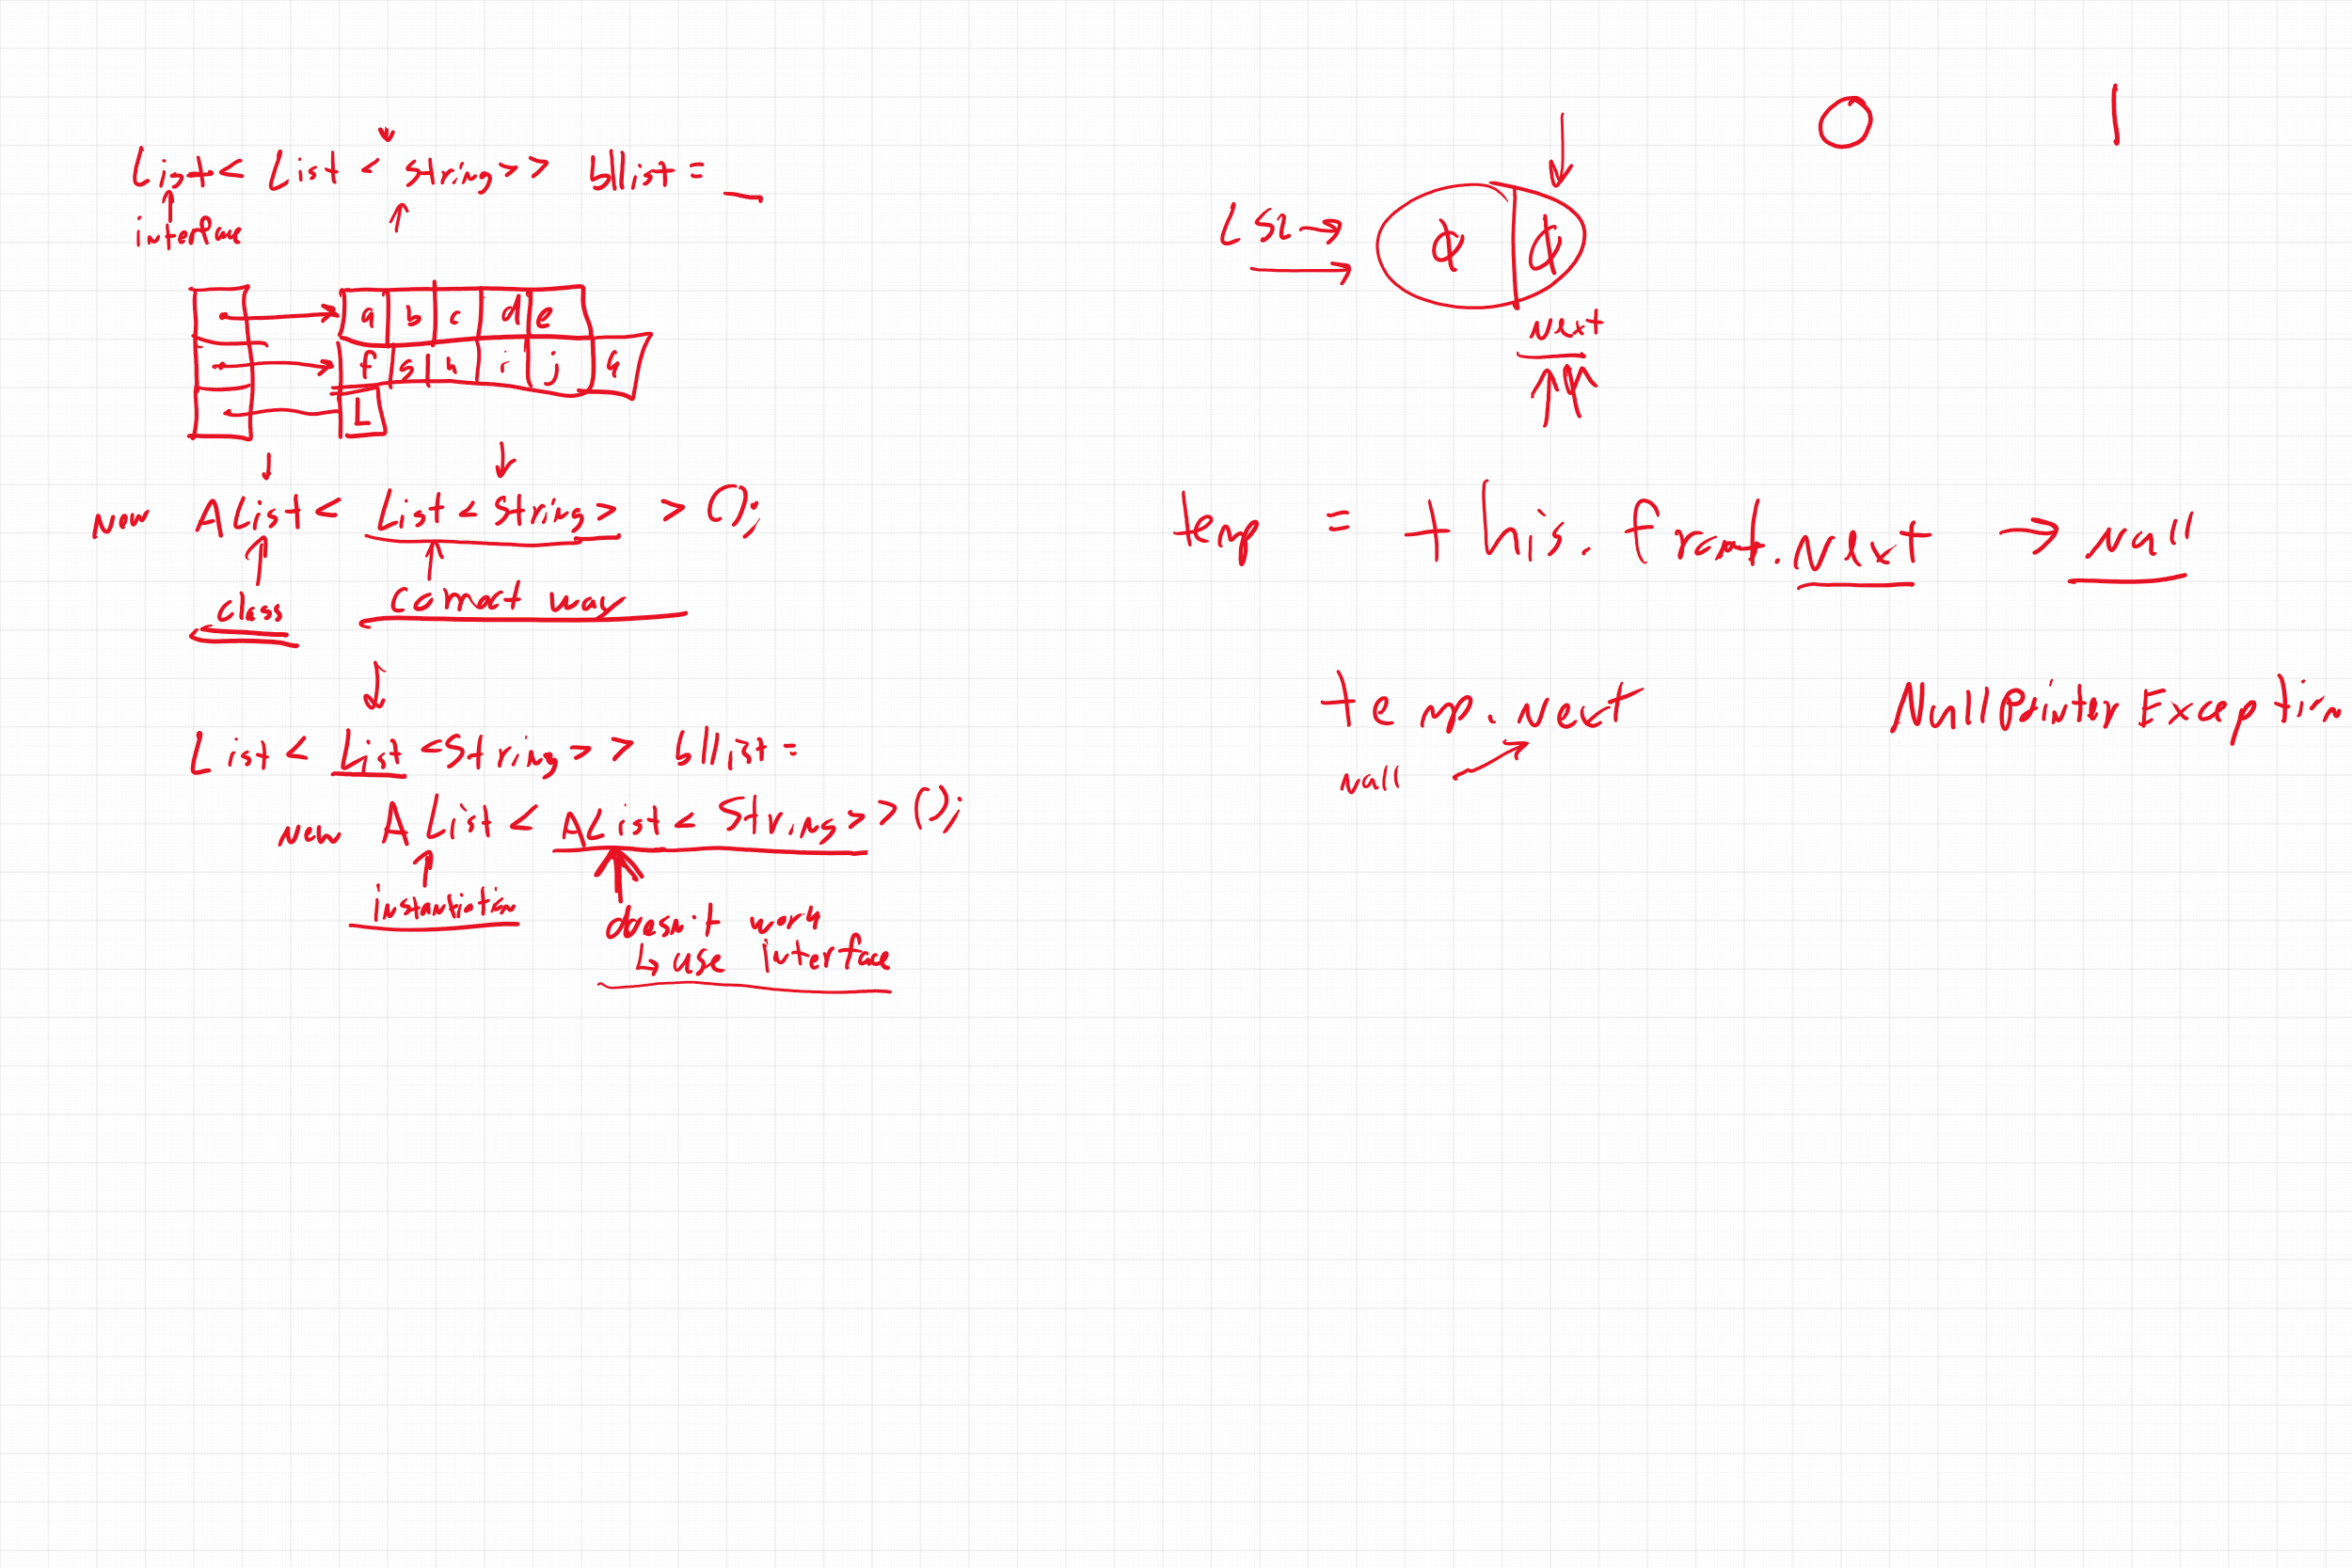 List< List < string>> bllist = __
interface
a b c d e
f g h i j k
L
new AList < List < string > > ();
class
correct way
List < List <String> > bllist =
new AList < AList < String > > ();
instantiation
doesn't work
↳ use interface
0 1
LS2 →
next
= this.front.next → null
temp.next NullPointerException
null